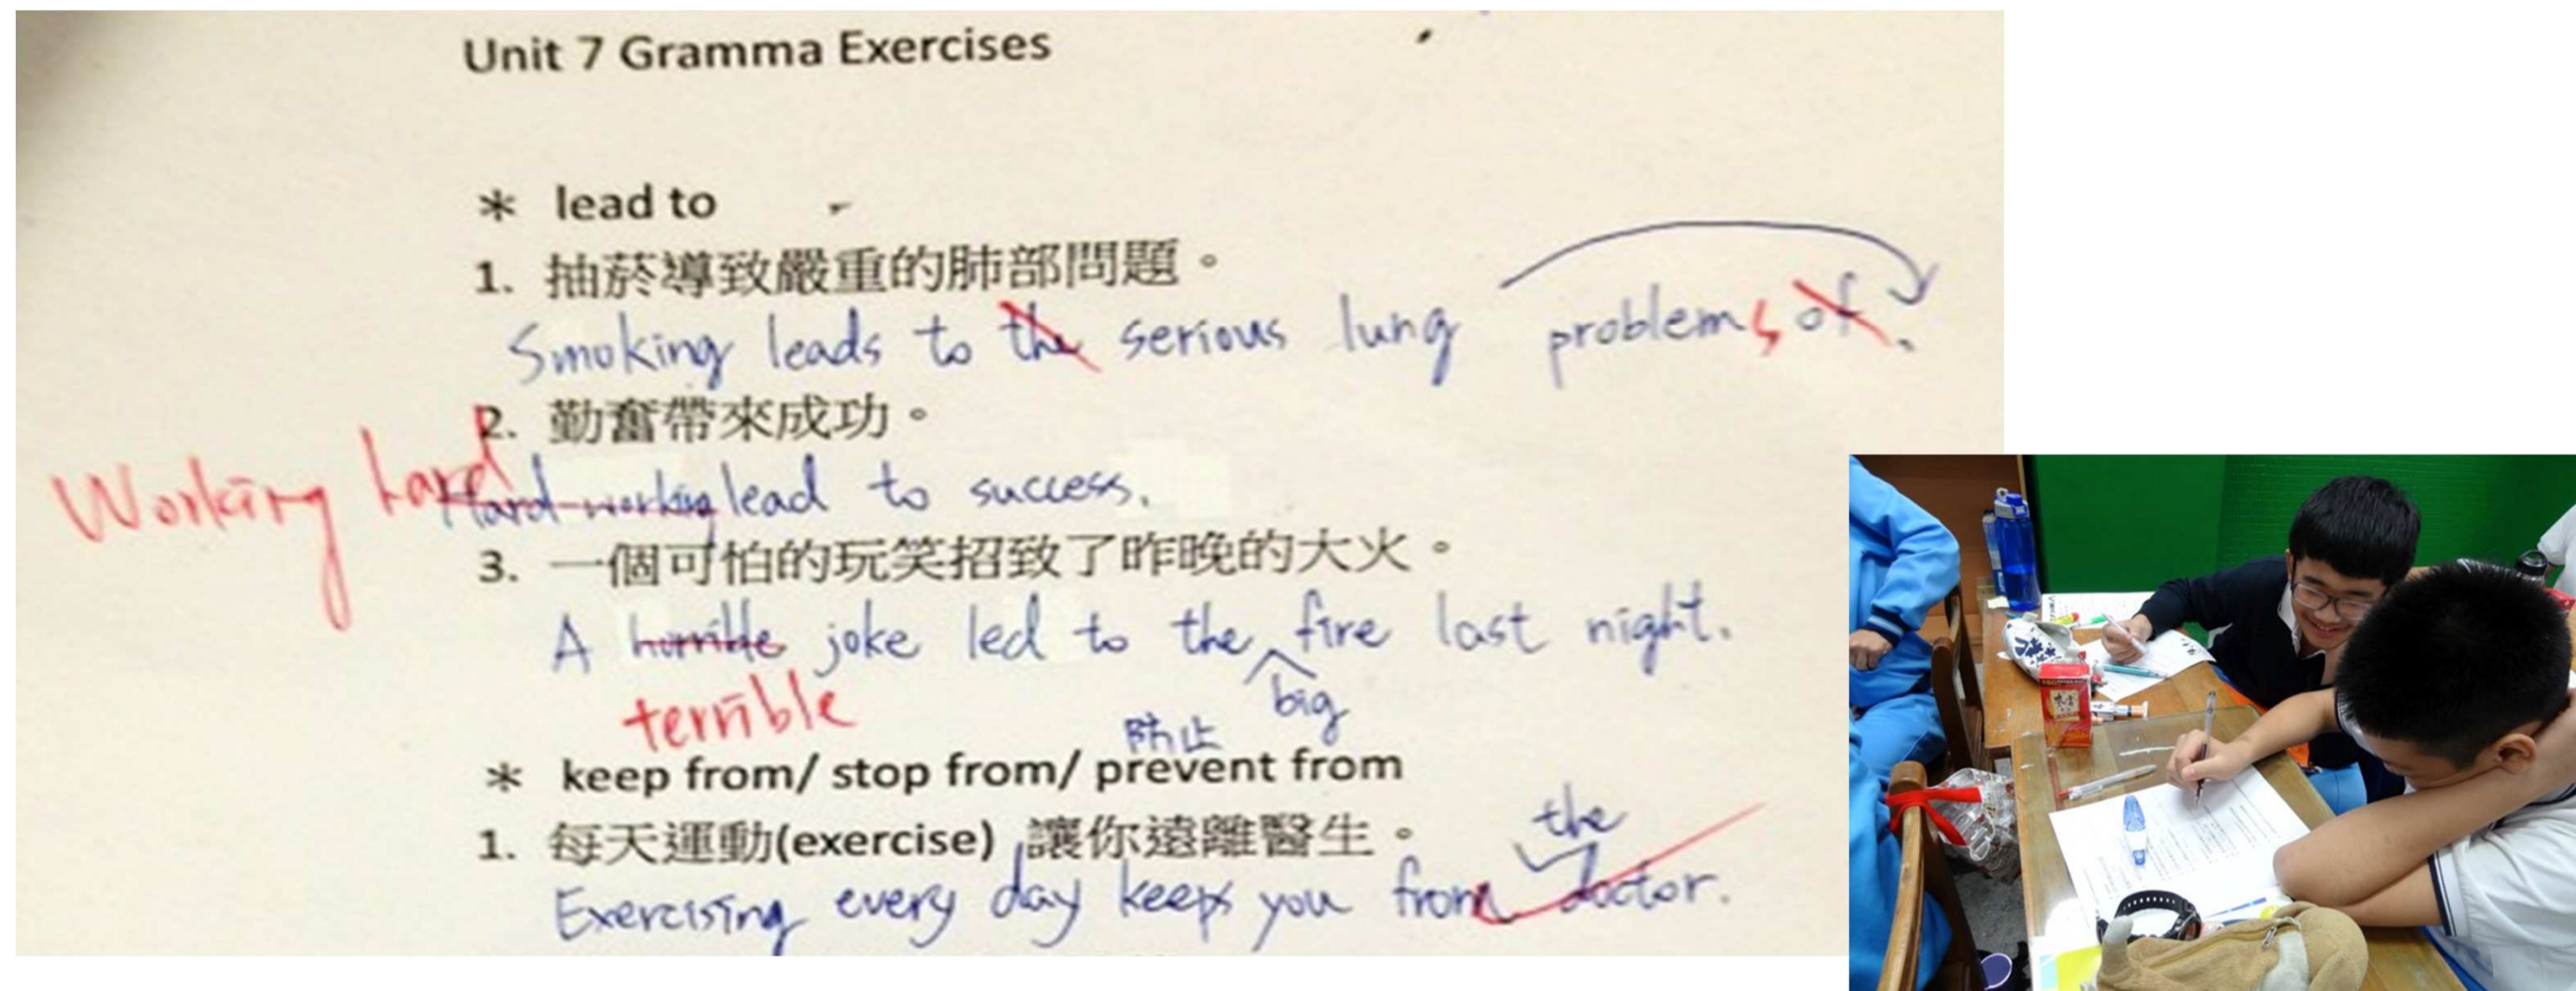 Unit 7 Gramma Exercises
* lead to
1. 抽菸導致嚴重的肺部問題。
Smoking leads to the serious lung problems of.
2. 勤奮帶來成功。
Working hard
Hard working lead to success.
3. 一個可怕的玩笑招致了昨晚的大火。
A horrible joke led to the fire last night.
terrible
big
防止
* keep from/ stop from/ prevent from
1. 每天運動(exercise) 讓你遠離醫生。
the
Exercising every day keeps you from doctor.